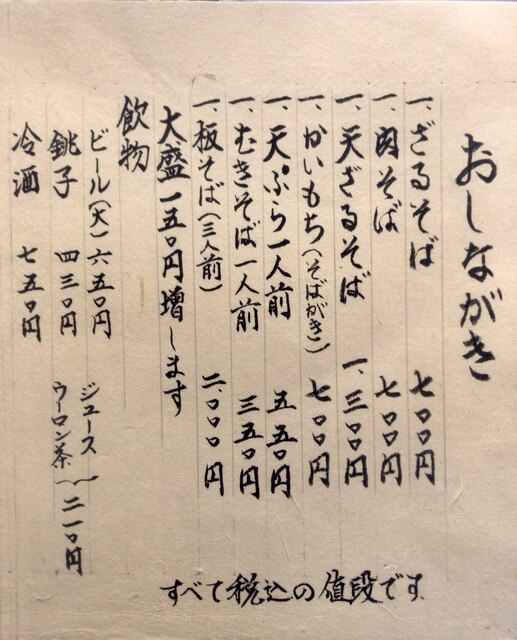 おしながき
一、ざるそば 七〇〇円
一、肉そば 七〇〇円
一、天ざるそば 一、三〇〇円
一、かいもち(そばがき) 七〇〇円
一、天ぷら一人前 五五〇円
一、むきそば一人前 三五〇円
一、板そば(三人前) 二、〇〇〇円
大盛一五〇円増します
飲物
ビール(大) 六五〇円
銚子 四三〇円
冷酒 七五〇円
ジュース
ウーロン茶 二一〇円
すべて税込の値段です